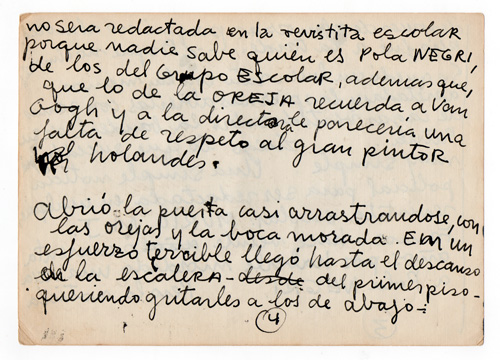 no sera redactada en la revistita escolar
porque nadie sabe quién es Pola NEGRI,
de los del Grupo ESCOLAR, ademas que,
que lo de la OREJA recuerda a Van
Gogh y a la directora le pareceria una
falta de respeto al gran pintor
holandes.
Abrió la puerta casi arrastrandose, con
las orejas y la boca morada. En un
esfuerzo terrible llegó hasta el descanso
de la escalera - desde del primer piso -
queriendo gritarles a los de abajo:
4